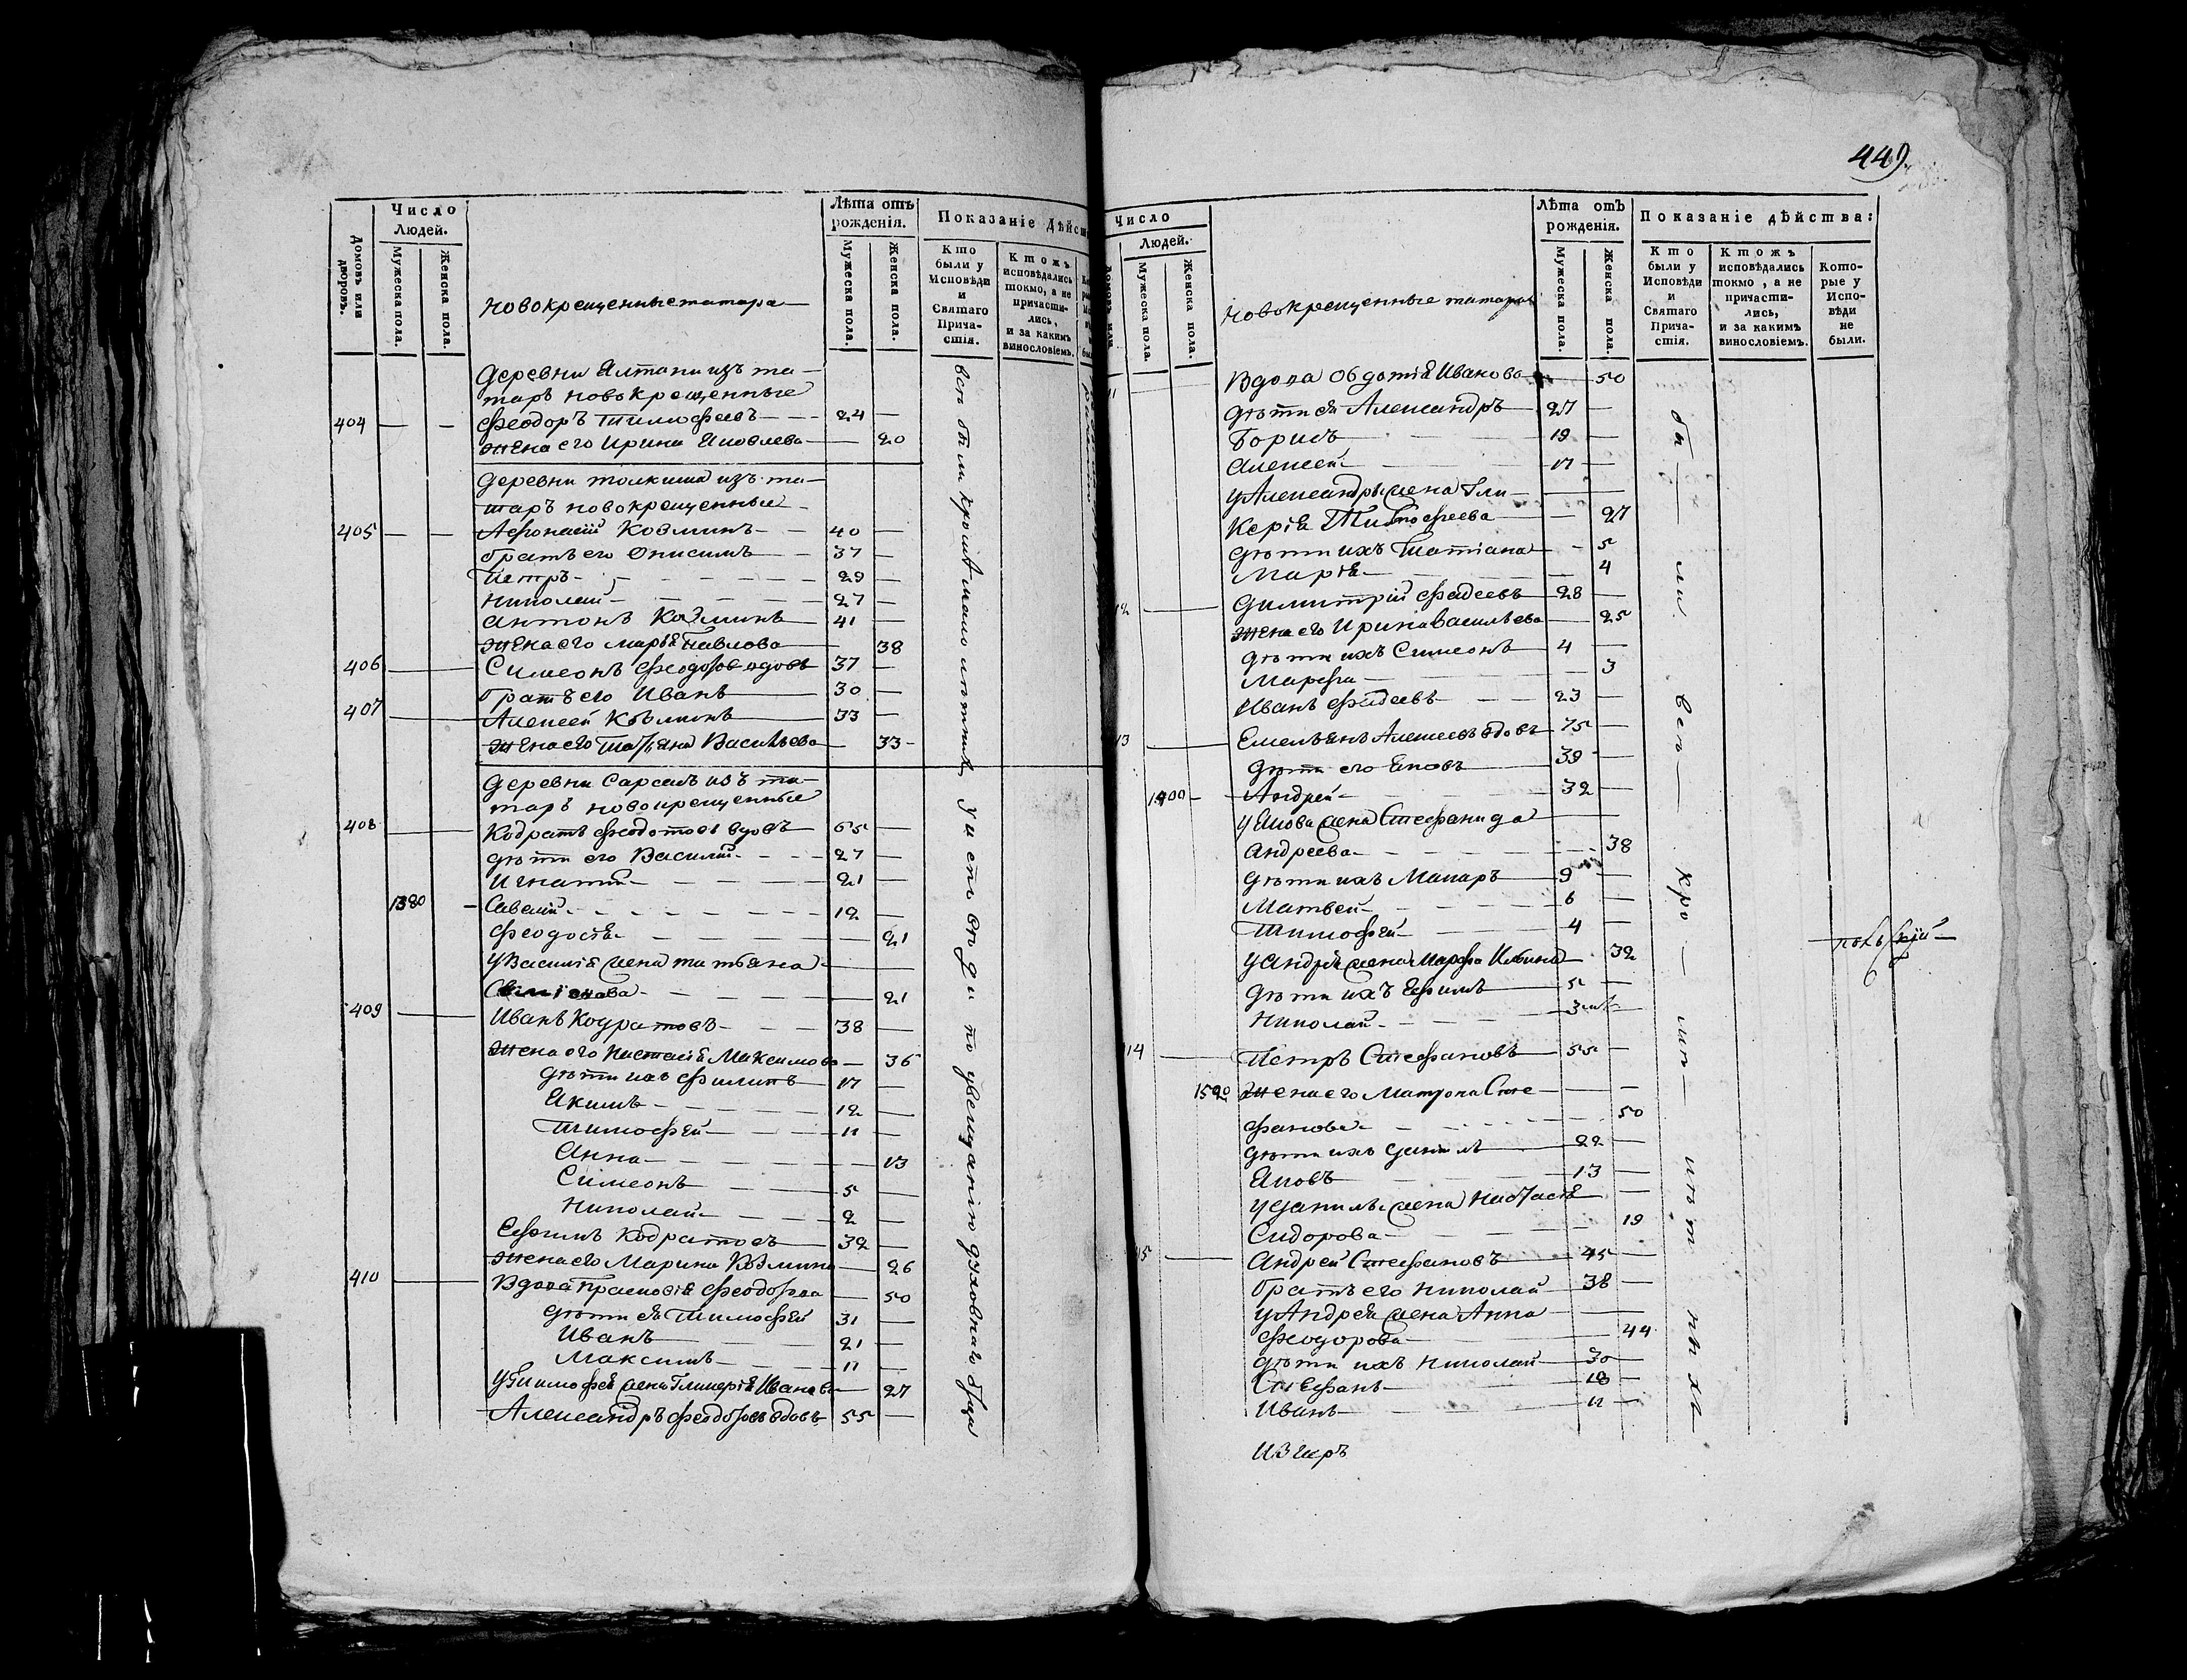 Домовъ или дворовъ.
Число Людей.
Мужеска пола.
Женска пола.
новокрещенные татара
Лѣта отъ рожденія.
Мужеска пола.
Женска пола.
Показаніе Дѣйст
Кто были у Исповѣди и Святаго Прича- стія.
Ктожъ исповѣдались токмо, а не причасти- лись, и за какимъ винословіемъ.
деревни Елтани изъ та-
таръ новокрещенные
404 — — Феодоръ Тимофеевъ 24 —
жена его Ирина Яковлева — 20
деревни толкиша изъ та-
таръ новокрещенные
405 — — Афонасій Козминъ 40 —
братъ его Онисимъ 37 —
Петръ 29 —
Николай 27 —
Антонъ Козминъ 41 —
жена его Марія Павлова — 38
406 — Симеонъ Феодоровъ вдовъ 37 —
братъ его Иванъ 30 —
407 — Алексей Козминъ 33 —
жена его Татіяна Васильева — 33
деревни Сарсазъ изъ та-
таръ новокрещенные
408 — Кодратъ Феодотовъ вдовъ 65 —
дѣти его Василій 27 —
Игнатій 21 —
1380 — Савелій 12 —
Феодосія — 21
у Василія жена татьяна
Семіонова — 21
409 — Иванъ Кодратовъ 38 —
жена его Настасія Максимова — 36
дѣти ихъ Филипъ 17 —
Якимъ 12 —
Тимофей 11 —
Анна — 13
Симеонъ 5 —
Николай 2 —
Ефимъ Кодратовъ 32 —
жена его Марина Козмина — 26
410 — Вдова Прасковія Феодорова — 50
дѣти ея Тимофей 31 —
Иванъ 21 —
Максимъ 11 —
у Тимофея жена Гликерія Иванова — 27
Александръ Феодоровъ вдовъ 55 —
всѣ были кромѣ мало
увещанію духовнаго
449.
Число Людей.
Мужеска пола.
Женска пола.
новокрещенные татара
Лѣта отъ рожденія.
Мужеска пола.
Женска пола.
Показаніе дѣйства:
Кто были у Исповѣди и Святаго Прича- стія.
Ктожъ исповѣдались токмо, а не причасти- лись, и за какимъ винословіемъ.
Кото- рые у Испо- вѣди не были.
11 — Вдова Овдотія Иванова — 50
дѣти ея Александръ 27 —
Борисъ 19 —
Алексей 17 —
у Александра жена Гли-
керія Тимофеева — 27
дѣти ихъ Татіана — 5
Марія — 4
12 — Димитрій Фадеевъ 28 —
жена его Ирина Васильева — 25
дѣти ихъ Симеонъ 4 —
Марфа — 3
Иванъ Фадеевъ 23 —
13 — Емельянъ Алексеевъ вдовъ 75 —
дѣти его Яковъ 39 —
1400 — Андрей 32 —
у Якова жена Стефанида
Андреева — 38
дѣти ихъ Макаръ 9 —
Матвей 6 —
Тимофей 4 —
у Андрея жена Марфа Ильина — 32
дѣти ихъ Ефимъ 5 —
Николай 3
14 — Петръ Стефановъ 55 —
1520 жена его Матрона Сте-
фанова — 50
дѣти ихъ Данилъ 22 —
Яковъ 13 —
у Данилы жена Настасія
Сидорова — 19
15 — Андрей Стефановъ 45 —
братъ его Николай 38 —
у Андрея жена Анна
Феодорова — 44
дѣти ихъ Николай 30 —
Стефанъ 18 —
Иванъ 11 —
бы — ли